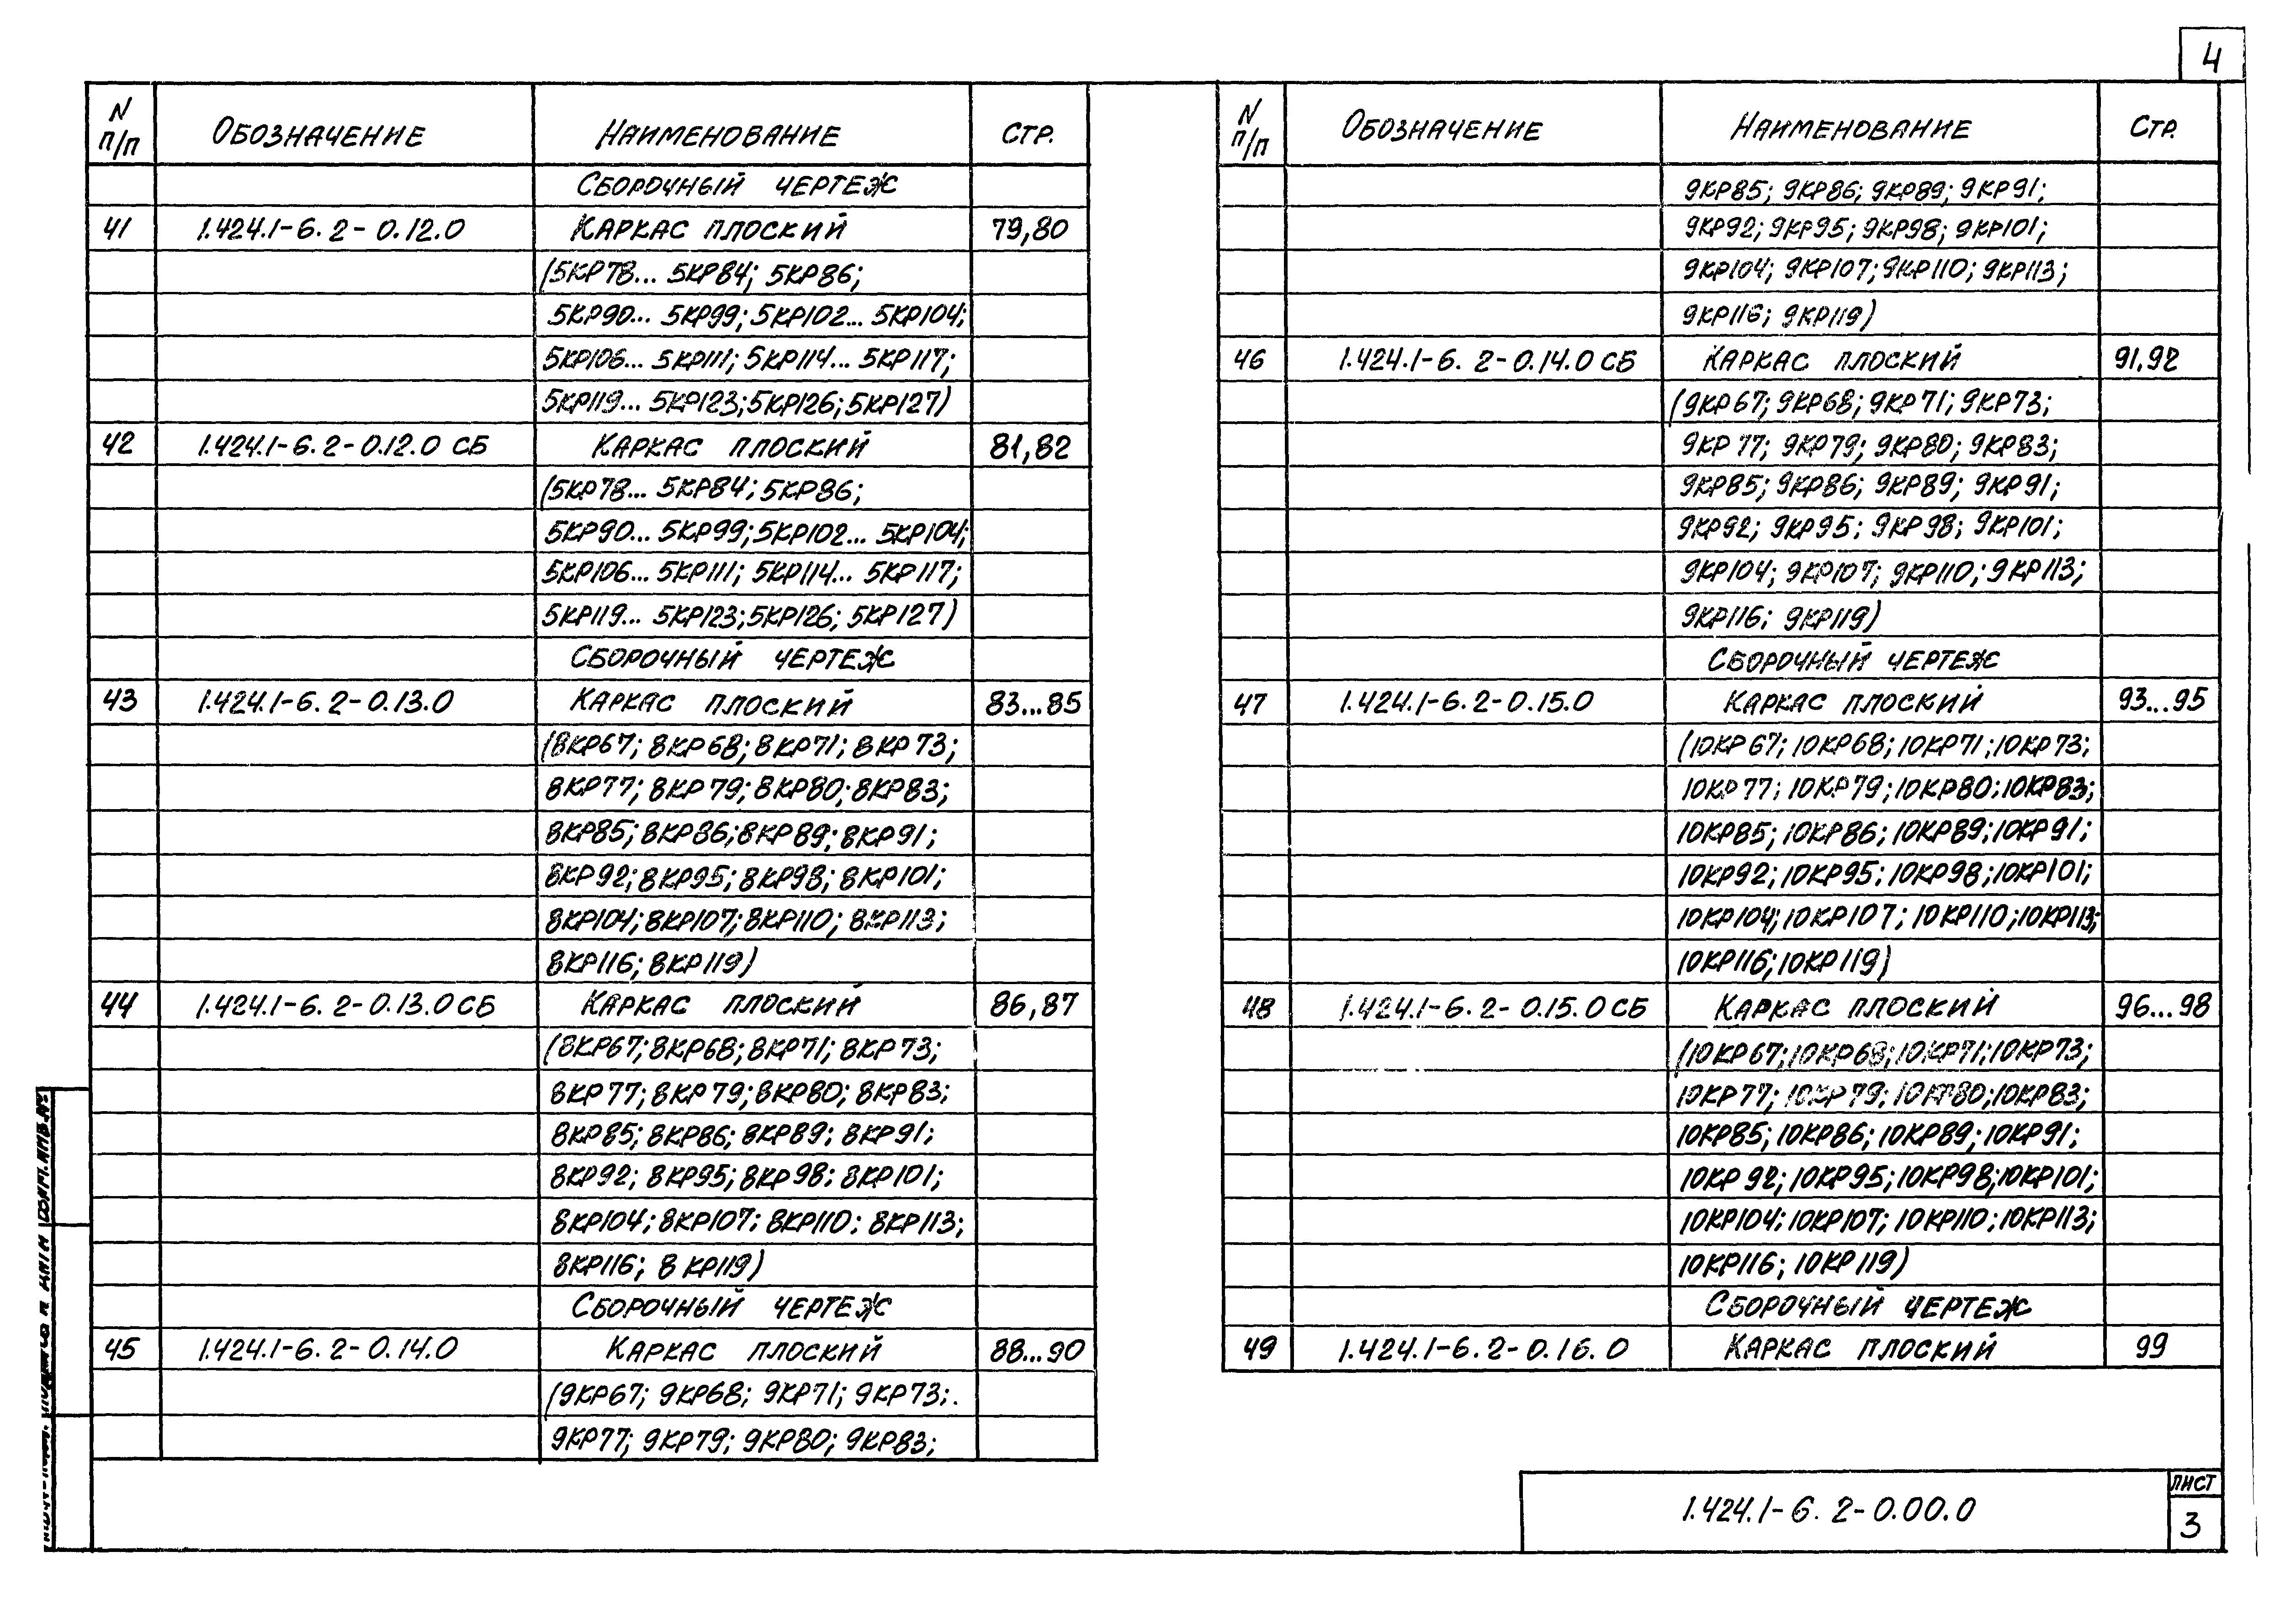 4
N п/п Обозначение Наименование Стр.
Сборочный чертеж
41 1.424.1-6.2-0.12.0 Каркас плоский 79,80
(5КР78... 5КР84; 5КР86;
5КР90... 5КР99; 5КР102... 5КР104;
5КР106... 5КР111; 5КР114... 5КР117;
5КР119... 5КР123; 5КР126; 5КР127)
42 1.424.1-6.2-0.12.0 СБ Каркас плоский 81,82
(5КР78... 5КР84; 5КР86;
5КР90... 5КР99; 5КР102... 5КР104;
5КР106... 5КР111; 5КР114... 5КР117;
5КР119... 5КР123; 5КР126; 5КР127)
Сборочный чертеж
43 1.424.1-6.2-0.13.0 Каркас плоский 83...85
(8КР67; 8КР68; 8КР71; 8КР73;
8КР77; 8КР79; 8КР80; 8КР83;
8КР85; 8КР86; 8КР89; 8КР91;
8КР92; 8КР95; 8КР98; 8КР101;
8КР104; 8КР107; 8КР110; 8КР113;
8КР116; 8КР119)
44 1.424.1-6.2-0.13.0 СБ Каркас плоский 86,87
(8КР67; 8КР68; 8КР71; 8КР73;
8КР77; 8КР79; 8КР80; 8КР83;
8КР85; 8КР86; 8КР89; 8КР91;
8КР92; 8КР95; 8КР98; 8КР101;
8КР104; 8КР107; 8КР110; 8КР113;
8КР116; 8КР119)
Сборочный чертеж
45 1.424.1-6.2-0.14.0 Каркас плоский 88...90
(9КР67; 9КР68; 9КР71; 9КР73;
9КР77; 9КР79; 9КР80; 9КР83;
N п/п Обозначение Наименование Стр.
9КР85; 9КР86; 9КР89; 9КР91;
9КР92; 9КР95; 9КР98; 9КР101;
9КР104; 9КР107; 9КР110; 9КР113;
9КР116; 9КР119)
46 1.424.1-6.2-0.14.0 СБ Каркас плоский 91,92
(9КР67; 9КР68; 9КР71; 9КР73;
9КР77; 9КР79; 9КР80; 9КР83;
9КР85; 9КР86; 9КР89; 9КР91;
9КР92; 9КР95; 9КР98; 9КР101;
9КР104; 9КР107; 9КР110; 9КР113;
9КР116; 9КР119)
Сборочный чертеж
47 1.424.1-6.2-0.15.0 Каркас плоский 93...95
(10КР67; 10КР68; 10КР71; 10КР73;
10КР77; 10КР79; 10КР80; 10КР83;
10КР85; 10КР86; 10КР89; 10КР91;
10КР92; 10КР95; 10КР98; 10КР101;
10КР104; 10КР107; 10КР110; 10КР113;
10КР116; 10КР119)
48 1.424.1-6.2-0.15.0 СБ Каркас плоский 96...98
(10КР67; 10КР68; 10КР71; 10КР73;
10КР77; 10КР79; 10КР80; 10КР83;
10КР85; 10КР86; 10КР89; 10КР91;
10КР92; 10КР95; 10КР98; 10КР101;
10КР104; 10КР107; 10КР110; 10КР113;
10КР116; 10КР119)
Сборочный чертеж
49 1.424.1-6.2-0.16.0 Каркас плоский 99
1.424.1-6.2-0.00.0
Лист
3